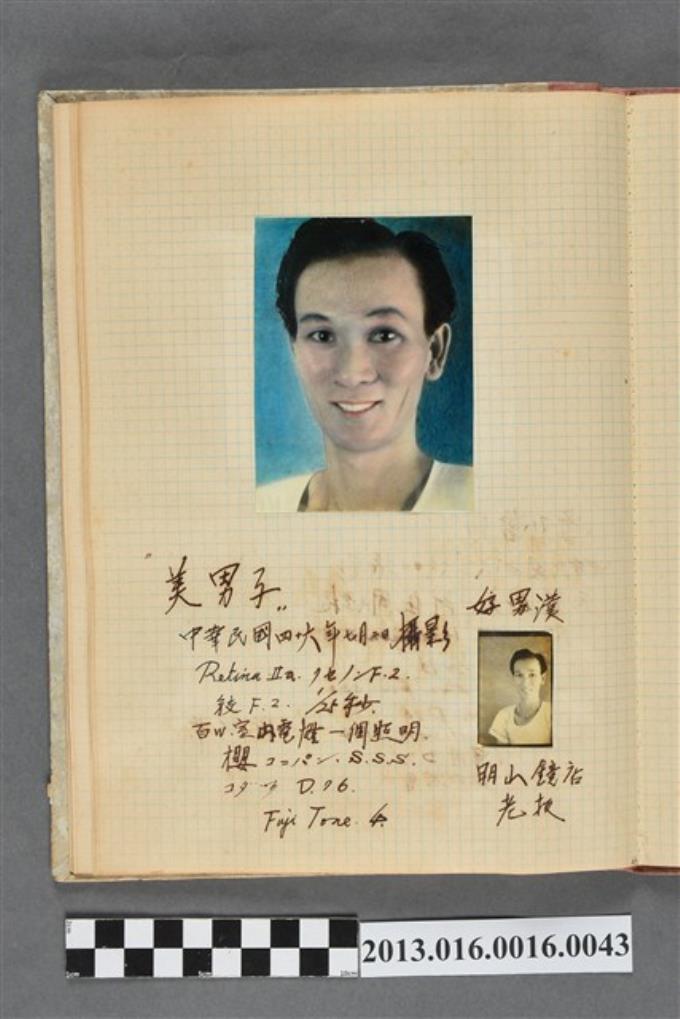 "美男子"
中華民國四十六年七月 日攝影
Retina IIa. クセノンF.2.
絞 F.2. 1/25秒.
百W.室内電燈一個照明.
櫻 コニパン. S.S.S.
コダック D.76.
Fuji Tone. 4.
好男漢
明山鏡店
老板
2013.016.0016.0043